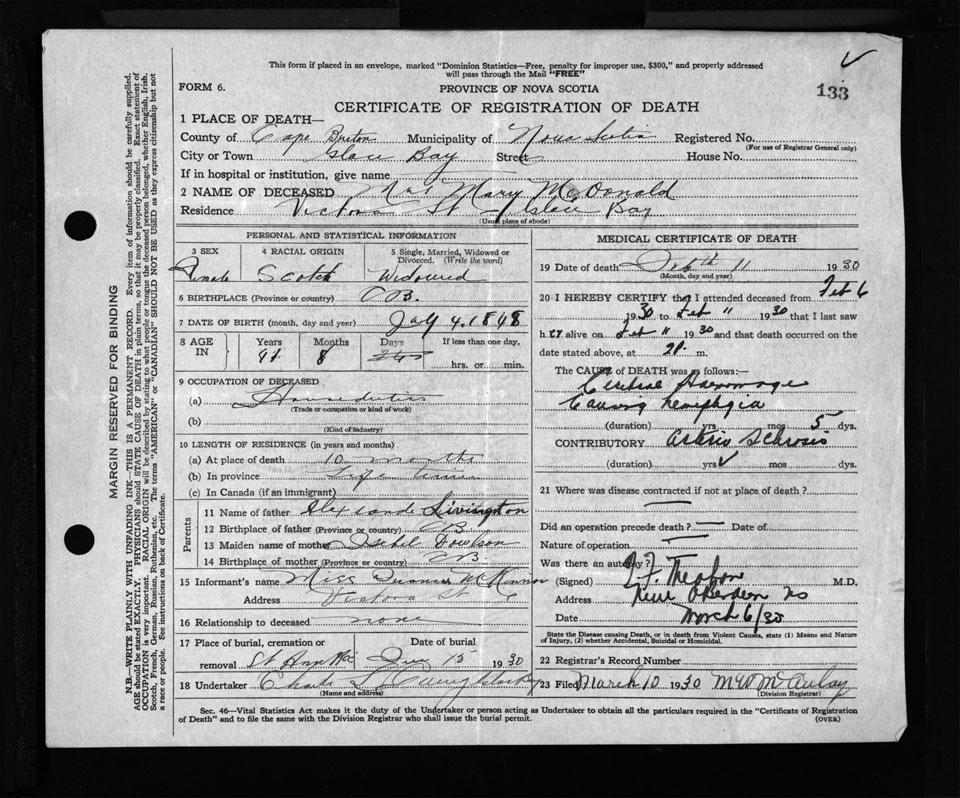 This form if placed in an envelope, marked "Dominion Statistics—Free, penalty for improper use, $300," and properly addressed
will pass through the Mail "FREE"
133
FORM 6.
PROVINCE OF NOVA SCOTIA
CERTIFICATE OF REGISTRATION OF DEATH
1 PLACE OF DEATH—
County of Cape Breton Municipality of Nova Scotia Registered No.
(For use of Registrar General only)
City or Town Glace Bay Street House No.
If in hospital or institution, give name
2 NAME OF DECEASED Mrs Mary McDonald
Residence Victoria St Glace Bay
(Usual place of abode)
PERSONAL AND STATISTICAL INFORMATION
3 SEX 4 RACIAL ORIGIN 5 Single, Married, Widowed or Divorced. (Write the word)
Female Scotch Widowed
6 BIRTHPLACE (Province or country) C B.
7 DATE OF BIRTH (month, day and year) 4, 1848
8 AGE IN Years Months Days If less than one day,
8
hrs. or min.
9 OCCUPATION OF DECEASED
(a) House duties
(Trade or occupation or kind of work)
(b)
(Kind of industry)
10 LENGTH OF RESIDENCE (in years and months)
(a) At place of death 10 months
(b) In province Life time
(c) In Canada (if an immigrant)
Parents
11 Name of father Alexande Livingston
12 Birthplace of father (Province or country) CB
13 Maiden name of mother
14 Birthplace of mother (Province or country) CB
15 Informant's name Miss McKinnon
Address Victoria St
16 Relationship to deceased none
17 Place of burial, cremation or removal St Ann Date of burial 15 1930
18 Undertaker
(Name and address)
MEDICAL CERTIFICATE OF DEATH
19 Date of death Feb 11 1930
(Month, day and year)
20 I HEREBY CERTIFY that I attended deceased from Feb 6
1930 to Feb 11 1930 that I last saw
h er alive on Feb 11 1930 and that death occurred on the
date stated above, at m.
The CAUSE OF DEATH was as follows:—
Haemorrage
Causing
(duration) yrs mos 5 dys.
CONTRIBUTORY Arterio Sclerosis
(duration) yrs mos dys.
21 Where was disease contracted if not at place of death?
Did an operation precede death? — Date of
Nature of operation
Was there an autopsy?
(Signed) M.D.
Address New Aberdeen NS
Date March 6/30
State the Disease causing Death, or in death from Violent Causes, state (1) Means and Nature
of Injury, (2) whether Accidental, Suicidal or Homicidal.
22 Registrar's Record Number
23 Filed March 10 1930 M W McAulay
(Division Registrar)
Sec. 46—Vital Statistics Act makes it the duty of the Undertaker or person acting as Undertaker to obtain all the particulars required in the "Certificate of Registration
of Death" and to file the same with the Division Registrar who shall issue the burial permit.
(OVER)
MARGIN RESERVED FOR BINDING
N.B.—WRITE PLAINLY WITH UNFADING INK—THIS IS A PERMANENT RECORD. Every item of information should be carefully supplied.
AGE should be stated EXACTLY. PHYSICIANS should state CAUSE OF DEATH in plain terms, so that it may be properly classified. Exact statement of
OCCUPATION is very important. RACIAL ORIGIN will be described by stating to what people or tongue the deceased person belonged, whether English, Irish,
Scotch, French, German, Russian, Ruthenian, etc. The terms "AMERICAN" or "CANADIAN" SHOULD NOT BE USED as they express citizenship but not
a race or people. See instructions on back of Certificate.